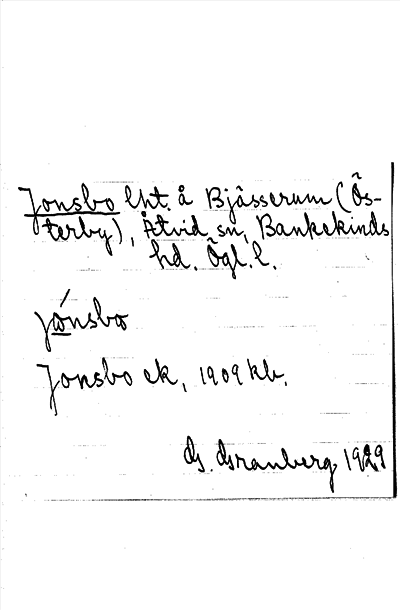 Jonsbo lht. å Bjässerum (Ös-
terby), Åtvid sn, Bankekinds
hd. Ögl. l.
jωnsbω
Jonsbo ek, 1909 kb.
G. Granberg 1929